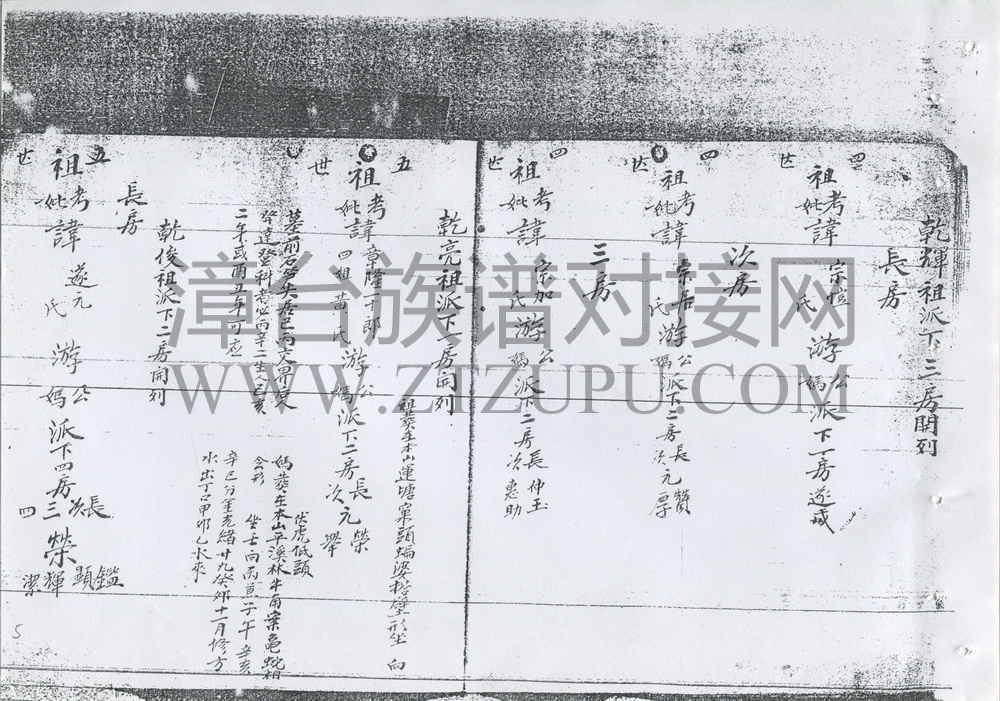 乾輝祖派下三房開列
長房
四世
祖考妣諱宗愷氏游公媽派下一房遂成
次房
四世
祖考妣諱宗布氏游公媽派下二房長次元贊厚
三房
四世
祖考妣諱宗加氏游公媽派下二房長次仲玉惠助
乾亮祖派下一房開列
祖葬在本山蓮塘窠頭蝙婆搭壁形坐 向
五世
祖考妣諱章隆十郎四組黃氏游公媽派下二房長次元榮舉
伏虎低頭
媽葬在本山平溪林牛角窠龜蛇相
會形 坐壬向丙兼子午辛亥
辛巳分金光緒廿九癸卯十一月修方
水出丁口甲卯乙水來
墓前
發達登科
二年或酉丑年可应
乾俊祖派下二房開列
長房
五世
祖考妣諱遂元氏游公媽派下四房長次三四榮鑑顯輝潔
5
漳台族谱对接网
WWW.ZTZUPU.COM